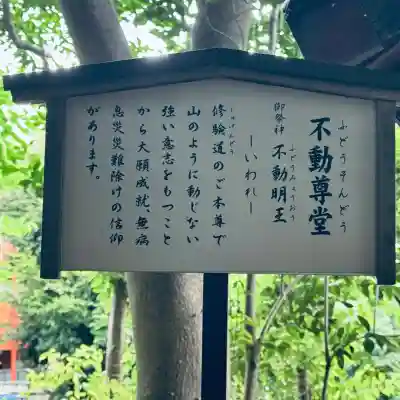 不動尊堂
ふどうそんどう
御祭神 不動明王
ふどうみょうおう
―いわれ―
修験道のご本尊で
しゅげんどう
山のように動じない
強い意志をもつこと
から大願成就、無病
息災災難除けの信仰
があります。